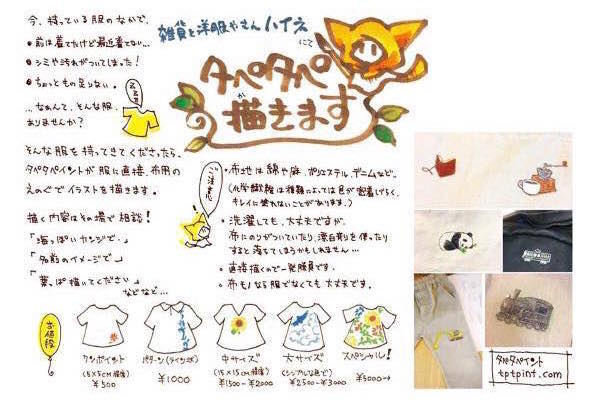 今、持っている服のなかで、
・前は着てたけど最近着てない...
・シミや汚れがついてしまった！
・ちょっともの足りない。
...なぁんて、そんな服、
ありませんか？
そんな服を持ってきてくださったら、
タペタペイントが服に直接、布用の
えのぐでイラストを描きます。
描く内容はその場で相談！
「海っぽいカンジで」
「名前のイメージで」
「葉っぱ描いてください」
などなど...
雑貨と洋服やさん ハイネ
にて
タペタペ
が
描きます
ご注意
・布地は綿や麻、ポリエステル、デニムなど。
(化学繊維は種類によっては色が密着しづらく、
キレイに塗れないことがあります。)
・洗濯しても、大丈夫ですが、
布にのりがついていたり、漂白剤を使ったり
すると落ちてしまうかもしれません...
・直接描くので一発勝負です。
・布モノなら服でなくても大丈夫です。
お値段
ワンポイント
(5×5cm程度)
¥500
パターン(ライン状)
¥1000
中サイズ
(15×15cm程度)
¥1500~¥2000
大サイズ
(シンプルな色で)
¥2500~¥3000
スペシャル！
¥5000→
タペタペイント
tptpint.com